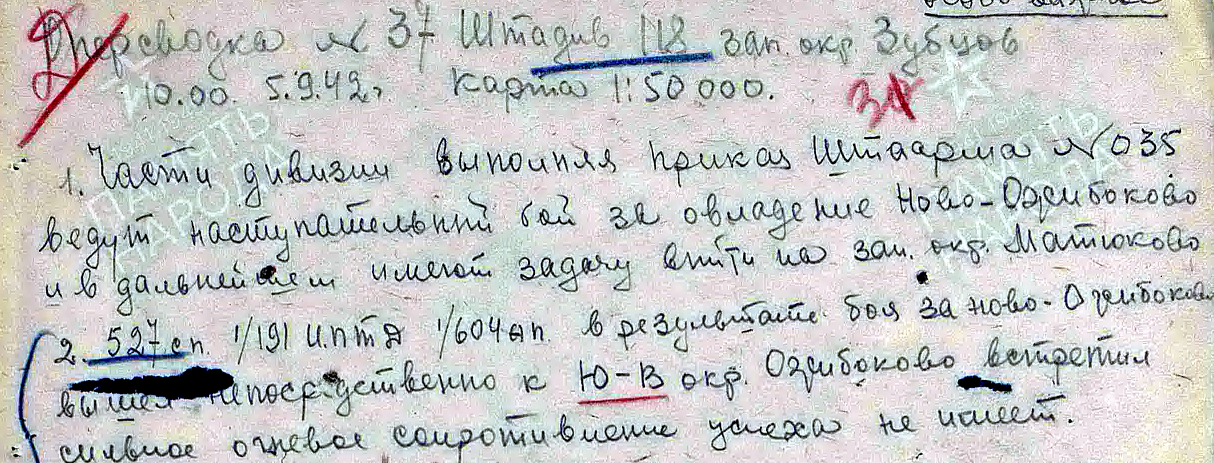 Оперсводка № 37 Штадив 118 зап. окр. Зубцов
10.00 5.9.42г Карта 1:50 000.
1. Части дивизии выполняя приказ Штаарма № 035
ведут наступательный бой за овладение Ново-Ожибоково
и в дальнейшем имеют задачу выйти на зап. окр. Матюково
2. 527 сп. 1/191 ИПТД 1/604 ап. в результате боя за Ново-Ожибоково
вышел непосредственно к Ю-В окр. Ожибоково встретил
сильное огневое сопротивление успеха не имеет.